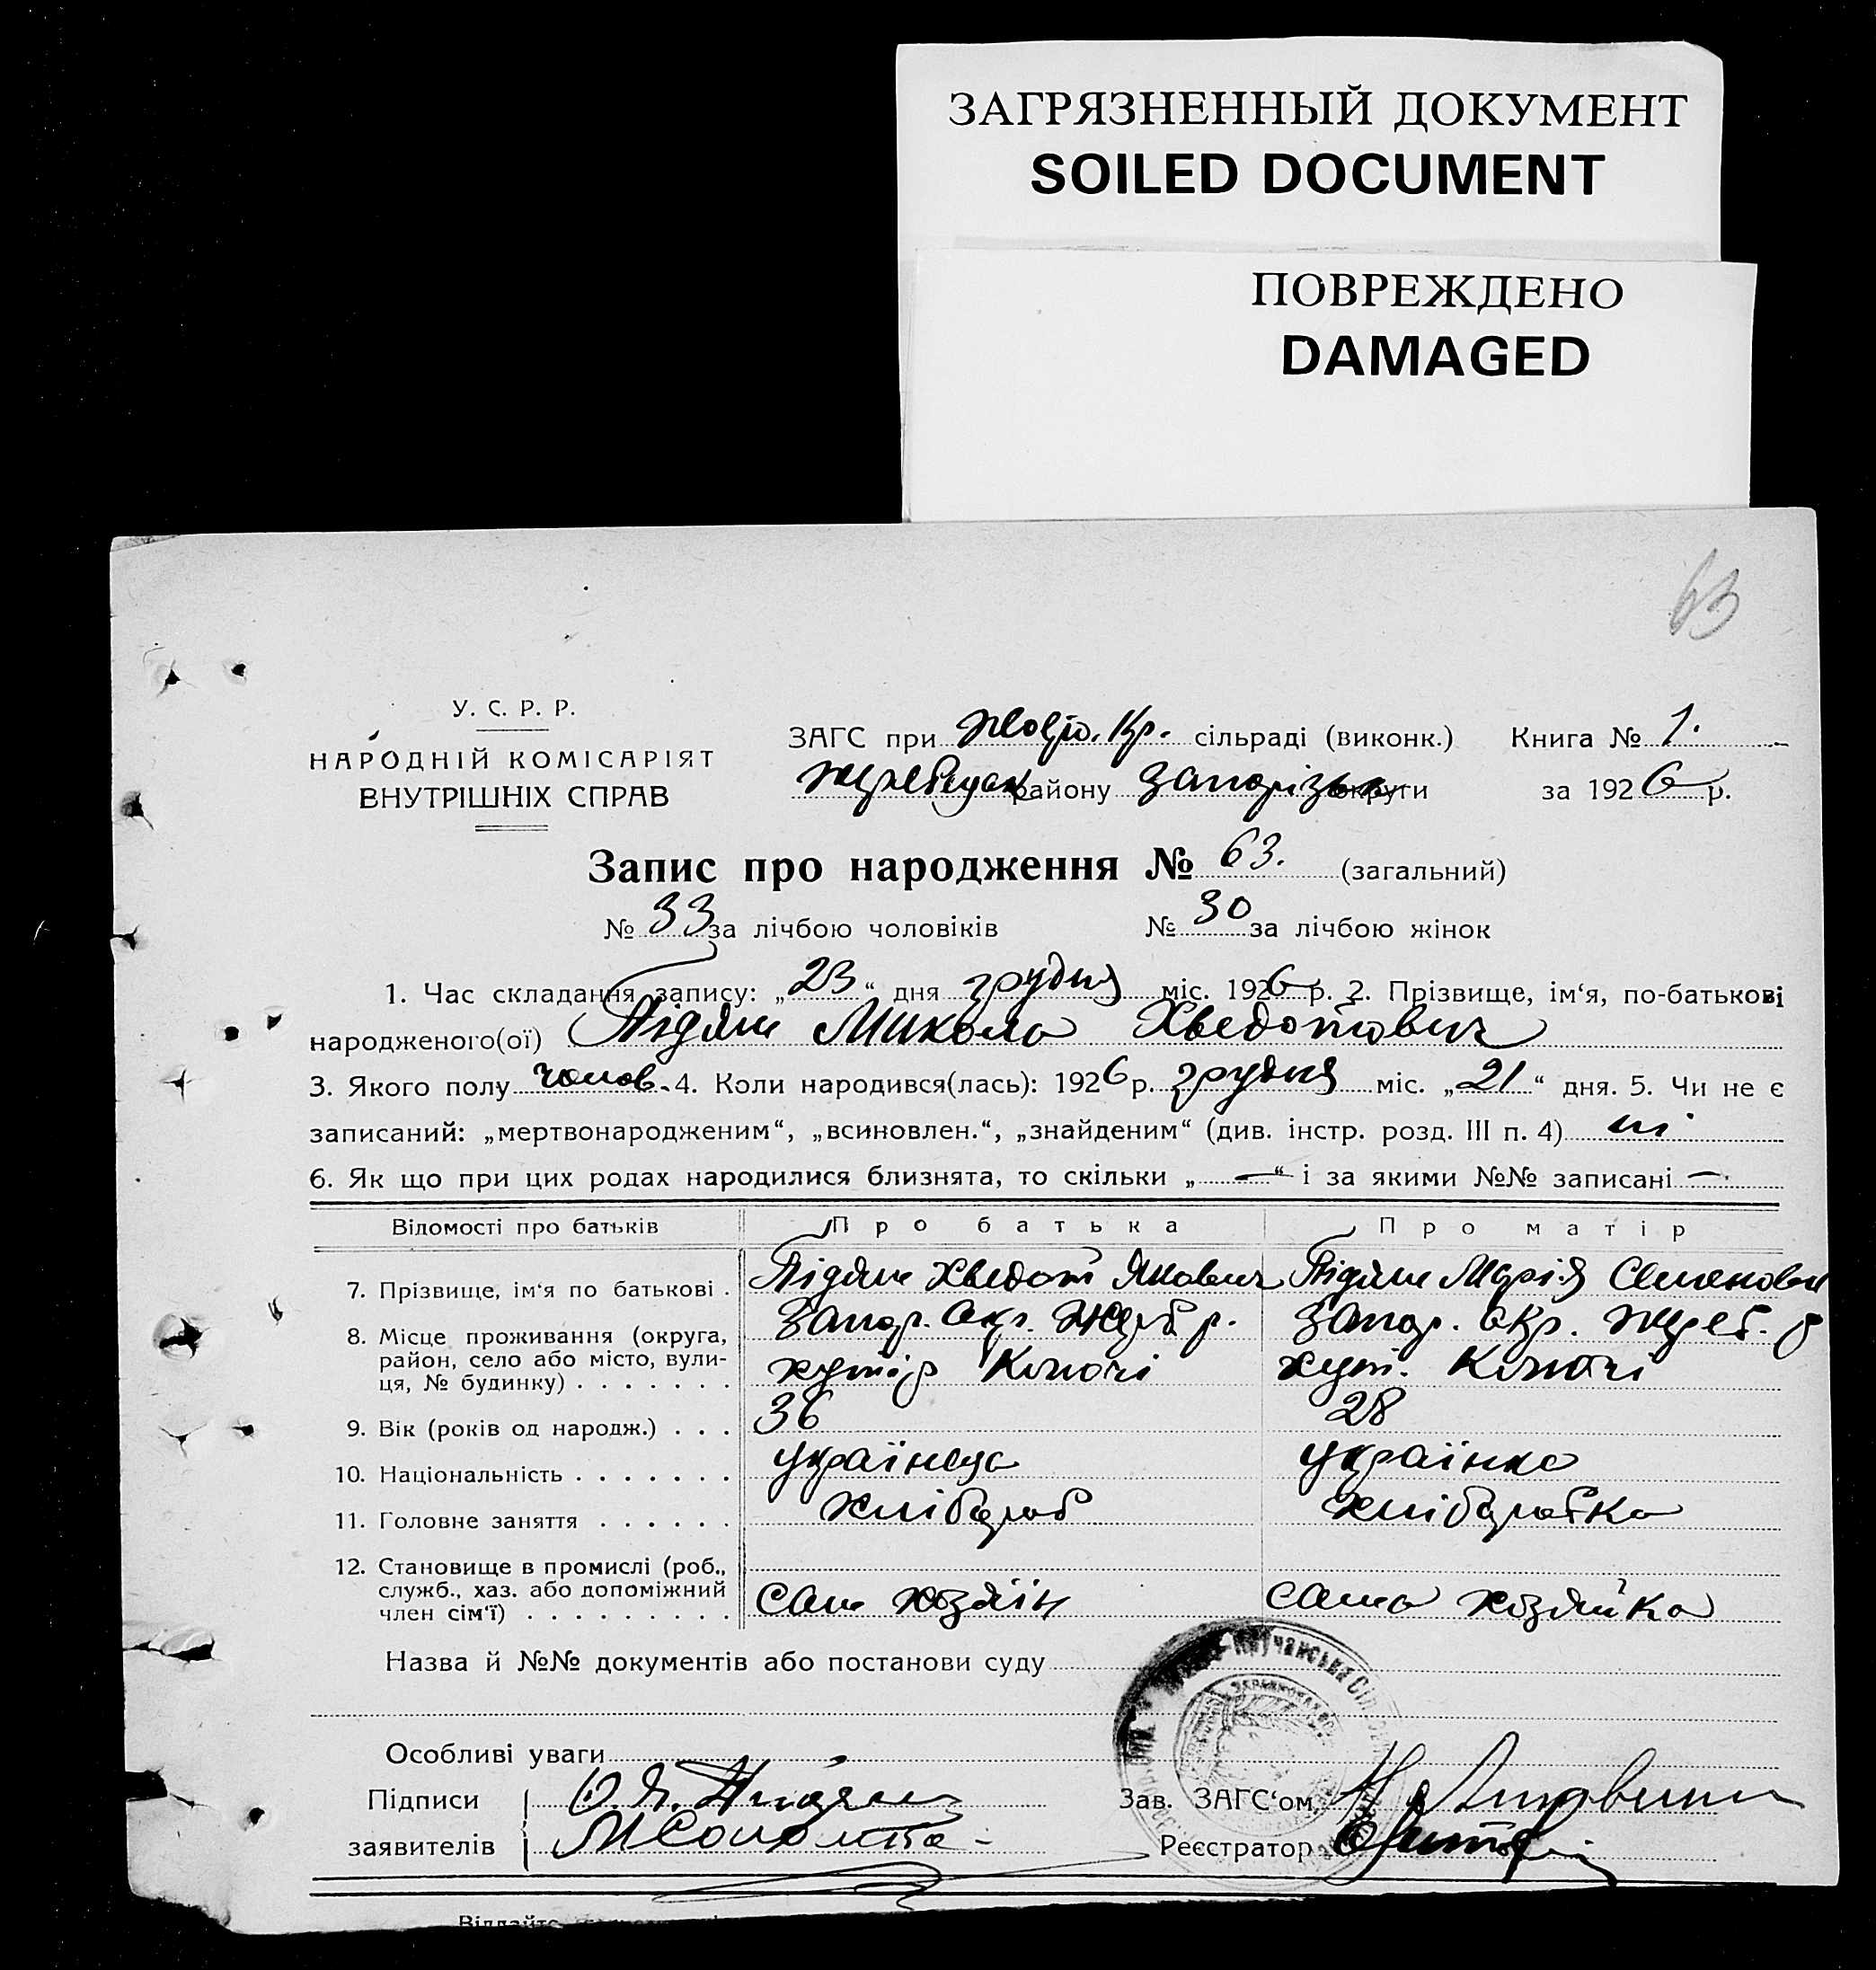 ЗАГРЯЗНЕННЫЙ ДОКУМЕНТ
SOILED DOCUMENT
ПОВРЕЖДЕНО
DAMAGED
63
У. С. Р. Р.
НАРОДНІЙ КОМІСАРІЯТ
ВНУТРІШНІХ СПРАВ
ЗАГС при Жовто. Кр. сільраді (виконк.) Книга № 1.
району Запорізьк округи за 1926 р.
Запис про народження № 63. (загальний)
№ 33 за лічбою чоловіків № 30 за лічбою жінок
1. Час складання запису: „23“ дня грудня міс. 1926 р. 2. Прізвище, ім‘я, по-батькові
народженого(ої) Підяш Микола Хведотович
3. Якого полу чолов. 4. Коли народився(лась): 1926 р. грудня міс. „21“ дня. 5. Чи не є
записаний: „мертвонародженим“, „всиновлен.“, „знайденим“ (див. інстр. розд. III п. 4) ні
6. Як що при цих родах народилися близнята, то скільки „—“ і за якими №№ записані —
Відомості про батьків Про батька Про матір
7. Прізвище, ім‘я по батькові . Підяш Хведот Якович Підяш Марія Семеновн
8. Місце проживання (округа, Запор. Окр. Жереб р. Запор. Окр. Жереб. р
район, село або місто, вули- хутір Ключі хут. Ключі
ця, № будинку) . . . . . . .
9. Вік (років од народж.) . . . 36 28
10. Національність . . . . . . . українець українка
11. Головне заняття . . . . . . хлібороб хліборобка
12. Становище в промислі (роб.,
служб., хаз. або допоміжний
член сім‘ї) . . . . . . . . . сам хозяїн сама хозяйка
Назва й №№ документів або постанови суду
Особливі уваги
Підписи Зав. ЗАГС‘ом
заявителів Реєстратор